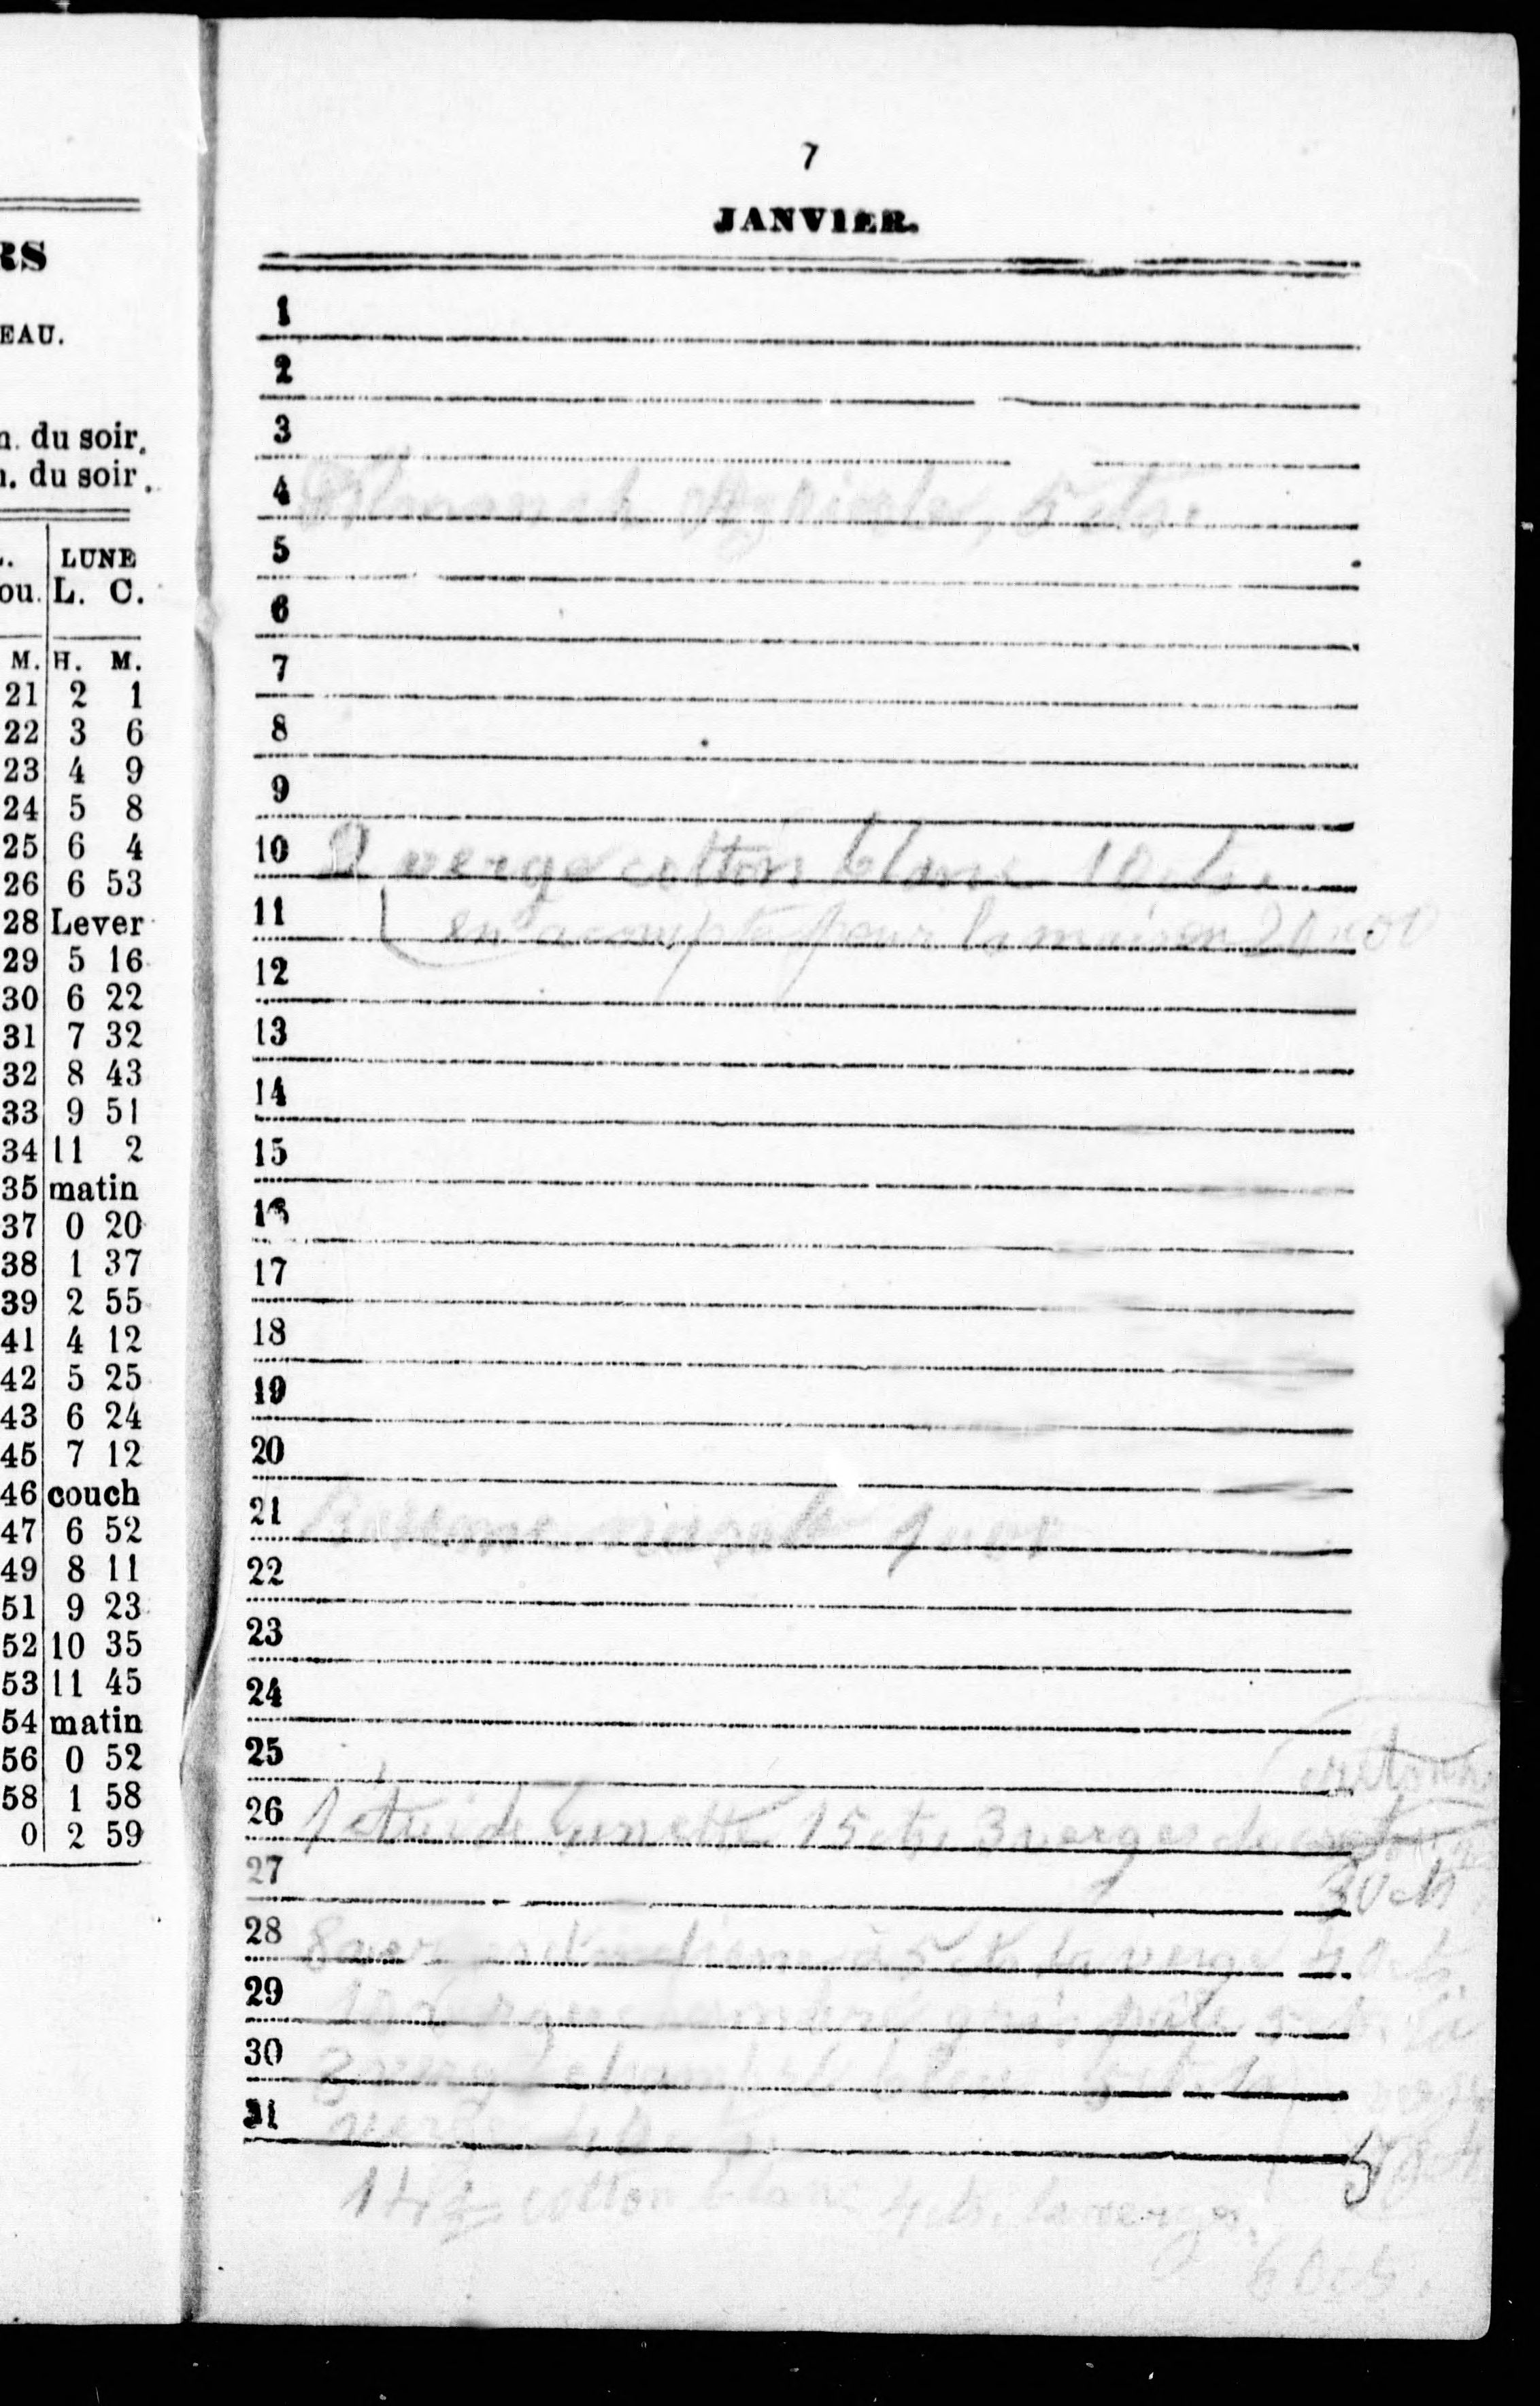 RS
EAU.
n. du soir.
n. du soir.
LUNE
ou. L. C.
M. H. M.
21 2 1
22 3 6
23 4 9
24 5 8
25 6 4
26 6 53
28 Lever
29 5 16
30 6 22
31 7 32
32 8 43
33 9 51
34 11 2
35 matin
37 0 20
38 1 37
39 2 55
41 4 12
42 5 25
43 6 24
45 7 12
46 couch
47 6 52
49 8 11
51 9 23
52 10 35
53 11 45
54 matin
56 0 52
58 1 58
0 2 59
7
JANVIER.
1
2
3
4 Almanach Agricole, 5 cts.
5
6
7
8
9
10 2 verge cotton blanc 10 cts.
11 en acompte pour la maison
12
13
14
15
16
17
18
19
20
21
22
23
24
25
26 1 étui de lunette 15 cts. 3 verges de
27 30 cts
28 à 5 cts la verge 40 cts.
29
30
31
14½ cotton blanc 4 cts. la verge.
60 cts.